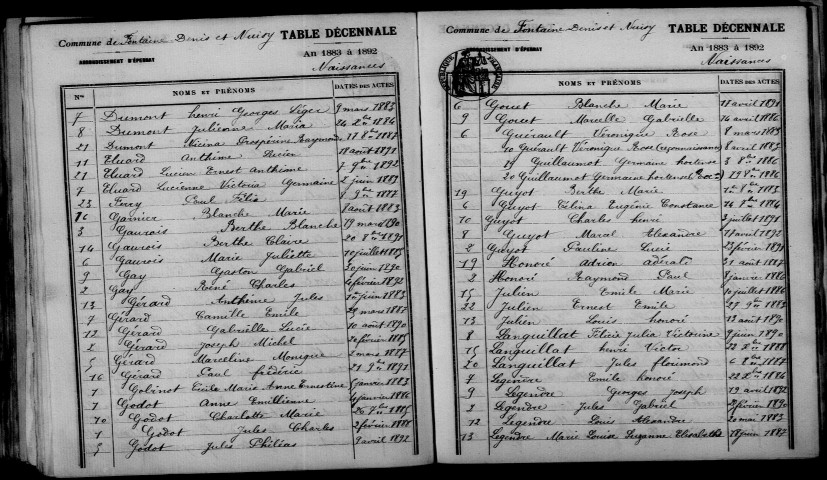 Commune de Fontaine Denis et Nuisy TABLE DÉCENNALE
ARRONDISSEMENT D'ÉPERNAY An 1883 à 1892
Naissances
Nos NOMS ET PRÉNOMS DATES DES ACTES
7 Dumont henri Georges Léger 9 mars 1883
8 Dumont Julienne Maria 24 Xbre 1886
21 Dumont Prospérine Raymond
11 Eluard Anthime Lucien 18 août 1891
21 Eluard Lucien Ernest Anthime 7 9bre 1892
7 Eluard Lucienne Victoria Germaine 2 juin 1889
23 Ferry Paul Félix 1887
16 Garnier Blanche Marie 1 août 1883
3 Gaurois Berthe Blanche 19 mars 1890
14 Gaurois Berthe Claire 1891
6 Gaurois Marie Juliette 10 juillet 1885
9 Gay Gaston Gabriel 30 juin 1890
2 Gay René Charles 4 février 1892
13 Gérard Anthime Jules juin 1883
7 Gérard Camille Emile 29 mars 1887
12 Gérard Gabrielle Lucie 10 août 1890
2 Gérard Joseph Michel 20 février 1885
5 Gérard Marceline Monique 2 mars 1887
16 Gérard Paul frédéric 21 9bre 1891
1 Gobinot Cécile Marie Anne Ernestine janvier 1883
1 Godot Anne Emillienne janvier 1886
10 Godot Charlotte Marie 26 1885
1 Godot Jules Charles 2 février 1888
5 Godot Jules Philéas 9 avril 1892
Commune de Fontaine Denis et Nuisy TABLE DÉCENNALE
ARRONDISSEMENT D'ÉPERNAY An 1883 à 1892
Naissances
NOMS ET PRÉNOMS DATES DES ACTES
6 Gouet Blanche Marie avril 1891
9 Gouet Marcelle Gabrielle 16 avril 1886
6 Guérault Véronique Rose 8 mars 1885
10 Guérault Véronique Rose (reconnaissance) 8 avril 1885
19 Guillaumot Germaine hortense 3 1886
20 Guillaumot Germaine hortense 29 1886
19 Guyot Berthe Marie 1883
6 Guyot Célina Eugénie Constance 1884
10 Guyot Charles henri 3 juillet 1891
8 Guyot Maral Alexandre avril 1892
2 Guyot Pauline Lucie février 1891
19 Honoré Adrien 21 août 1887
2 Honoré Raymond Paul 8 janvier 1886
15 Julien Emile Marie juillet 1886
22 Julien Ernest Emile 27 9bre 1883
13 Julien Louis honoré 13 août 1890
8 Languillat Félicie Julia Victorine 9 juin 1890
15 Languillat henri Victor 22 1888
20 Languillat Jules florimond 6 1887
7 Legendre Emile honoré 22 1886
9 Legendre Georges Joseph 19 avril 1892
2 Legendre Jules Gabriel février 1890
12 Legendre Louis Alexandre 20 mai 1883
13 Legendre Marie Louise Suzanne Elisabeth 18 juin 1887